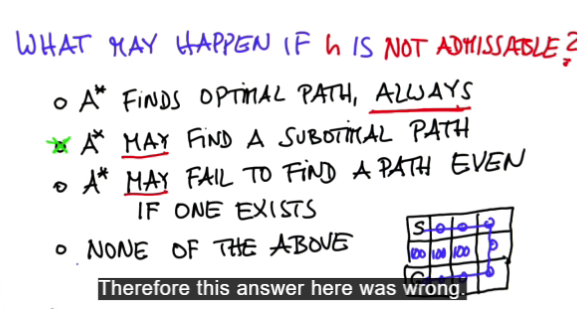 WHAT MAY HAPPEN IF h IS NOT ADMISSABLE?
A* FINDS OPTIMAL PATH, ALWAYS
A* MAY FIND A SUBOTIMAL PATH
A* MAY FAIL TO FIND A PATH EVEN
IF ONE EXISTS
NONE OF THE ABOVE
S
100 100 100
G
Therefore this answer here was wrong.